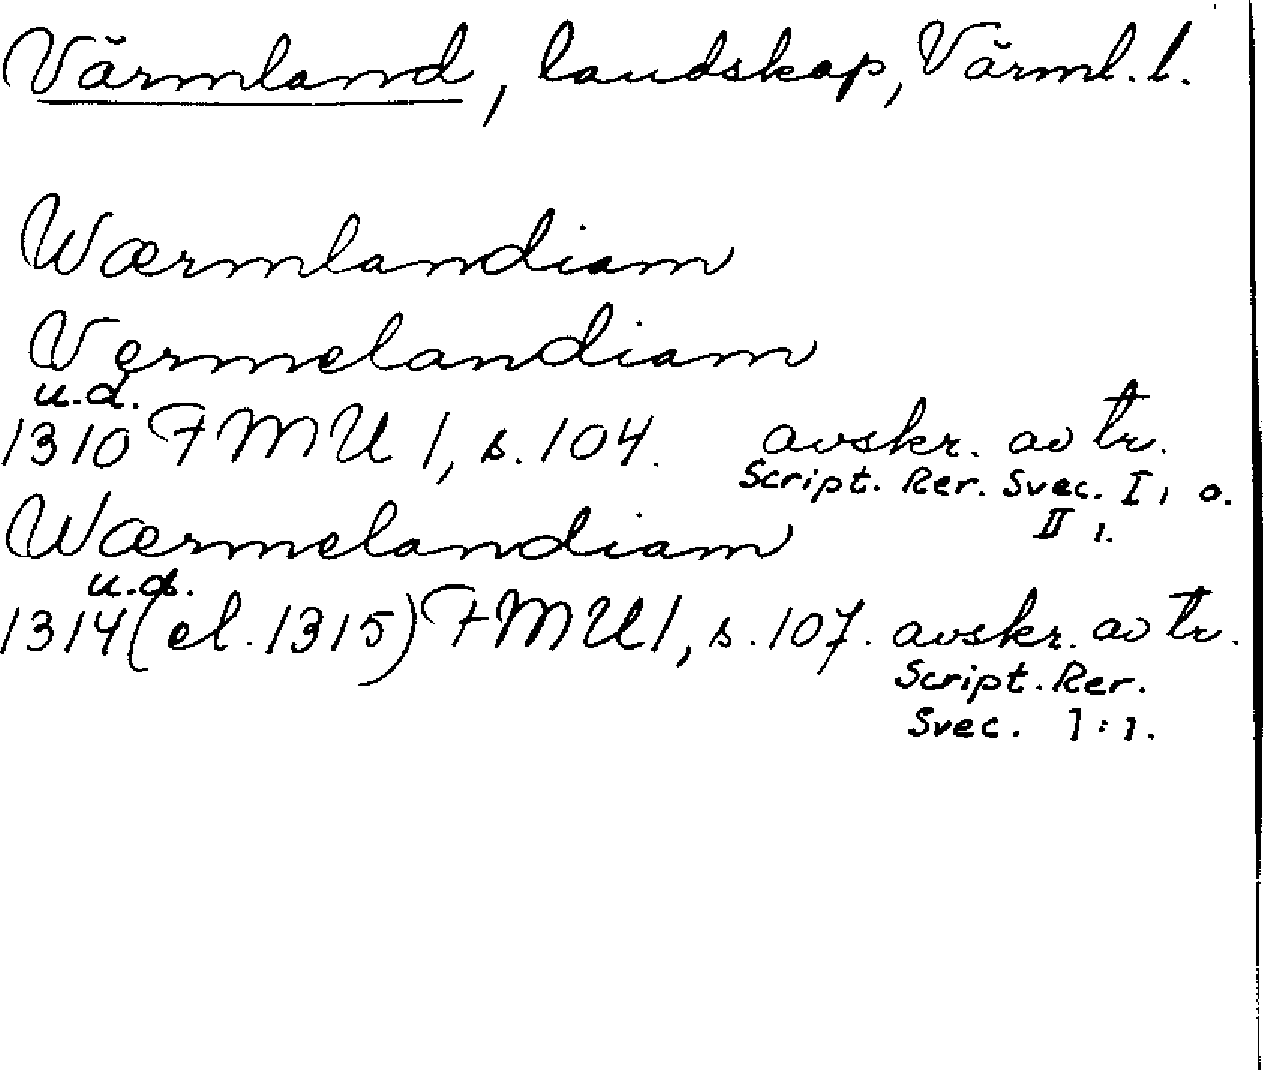 Värmland, landskap, Värml. l.
Wærmlandiam
Vermelandiam
u.d.
1310 FMU 1, s. 104. avskr. av tr.
Script. Rer. Svec. I, o.
II 1.
Wærmelandiam
u.d.
1314 (el. 1315) FMU 1, s. 107. avskr. av tr.
Script. Rer.
Svec. 1:1.